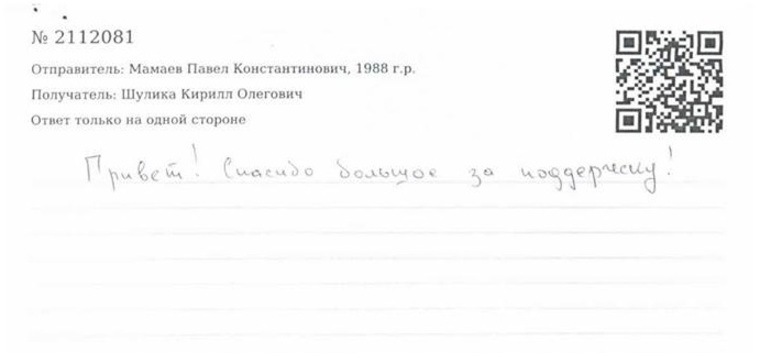 № 2112081
Отправитель: Мамаев Павел Константинович, 1988 г.р.
Получатель: Шулика Кирилл Олегович
Ответ только на одной стороне
Привет! Спасибо большое за поддержку!